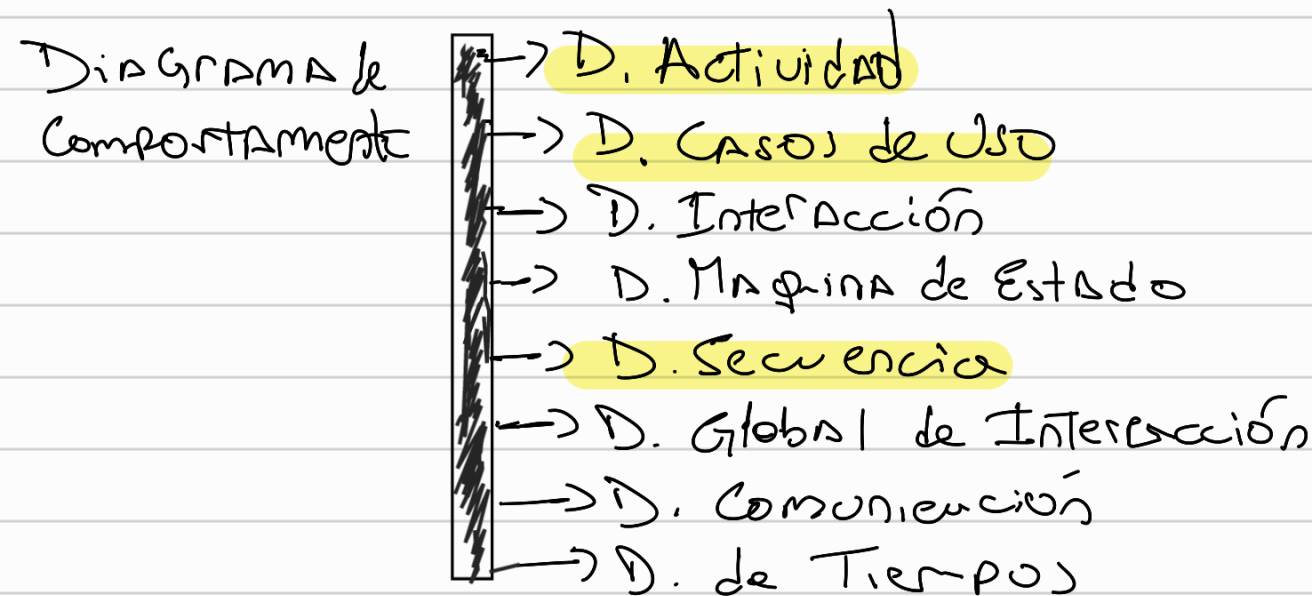 Diagrama de
Comportamente
D. Actividad
D. Casos de Uso
D. Interacción
D. Maquina de Estado
D. Secuencia
D. Global de Interacción
D. Comunicación
D. de Tiempos